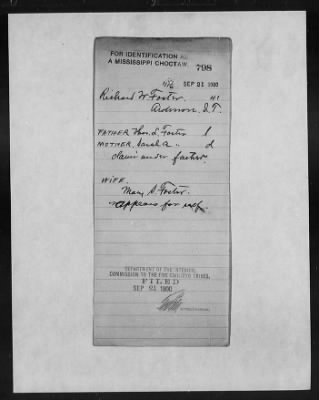 FOR IDENTIFICATION AS
A MISSISSIPPI CHOCTAW. 798
SEP 21 1900
Richard W. Foster. 41
Ardmore, I.T.
FATHER Thos. L. Foster l
MOTHER Sarah A. " d
claim under father.
WIFE.
Mary S. Foster.
appears for self.
DEPARTMENT OF THE INTERIOR,
COMMISSION TO THE FIVE CIVILIZED TRIBES,
FILED
SEP 21 1900